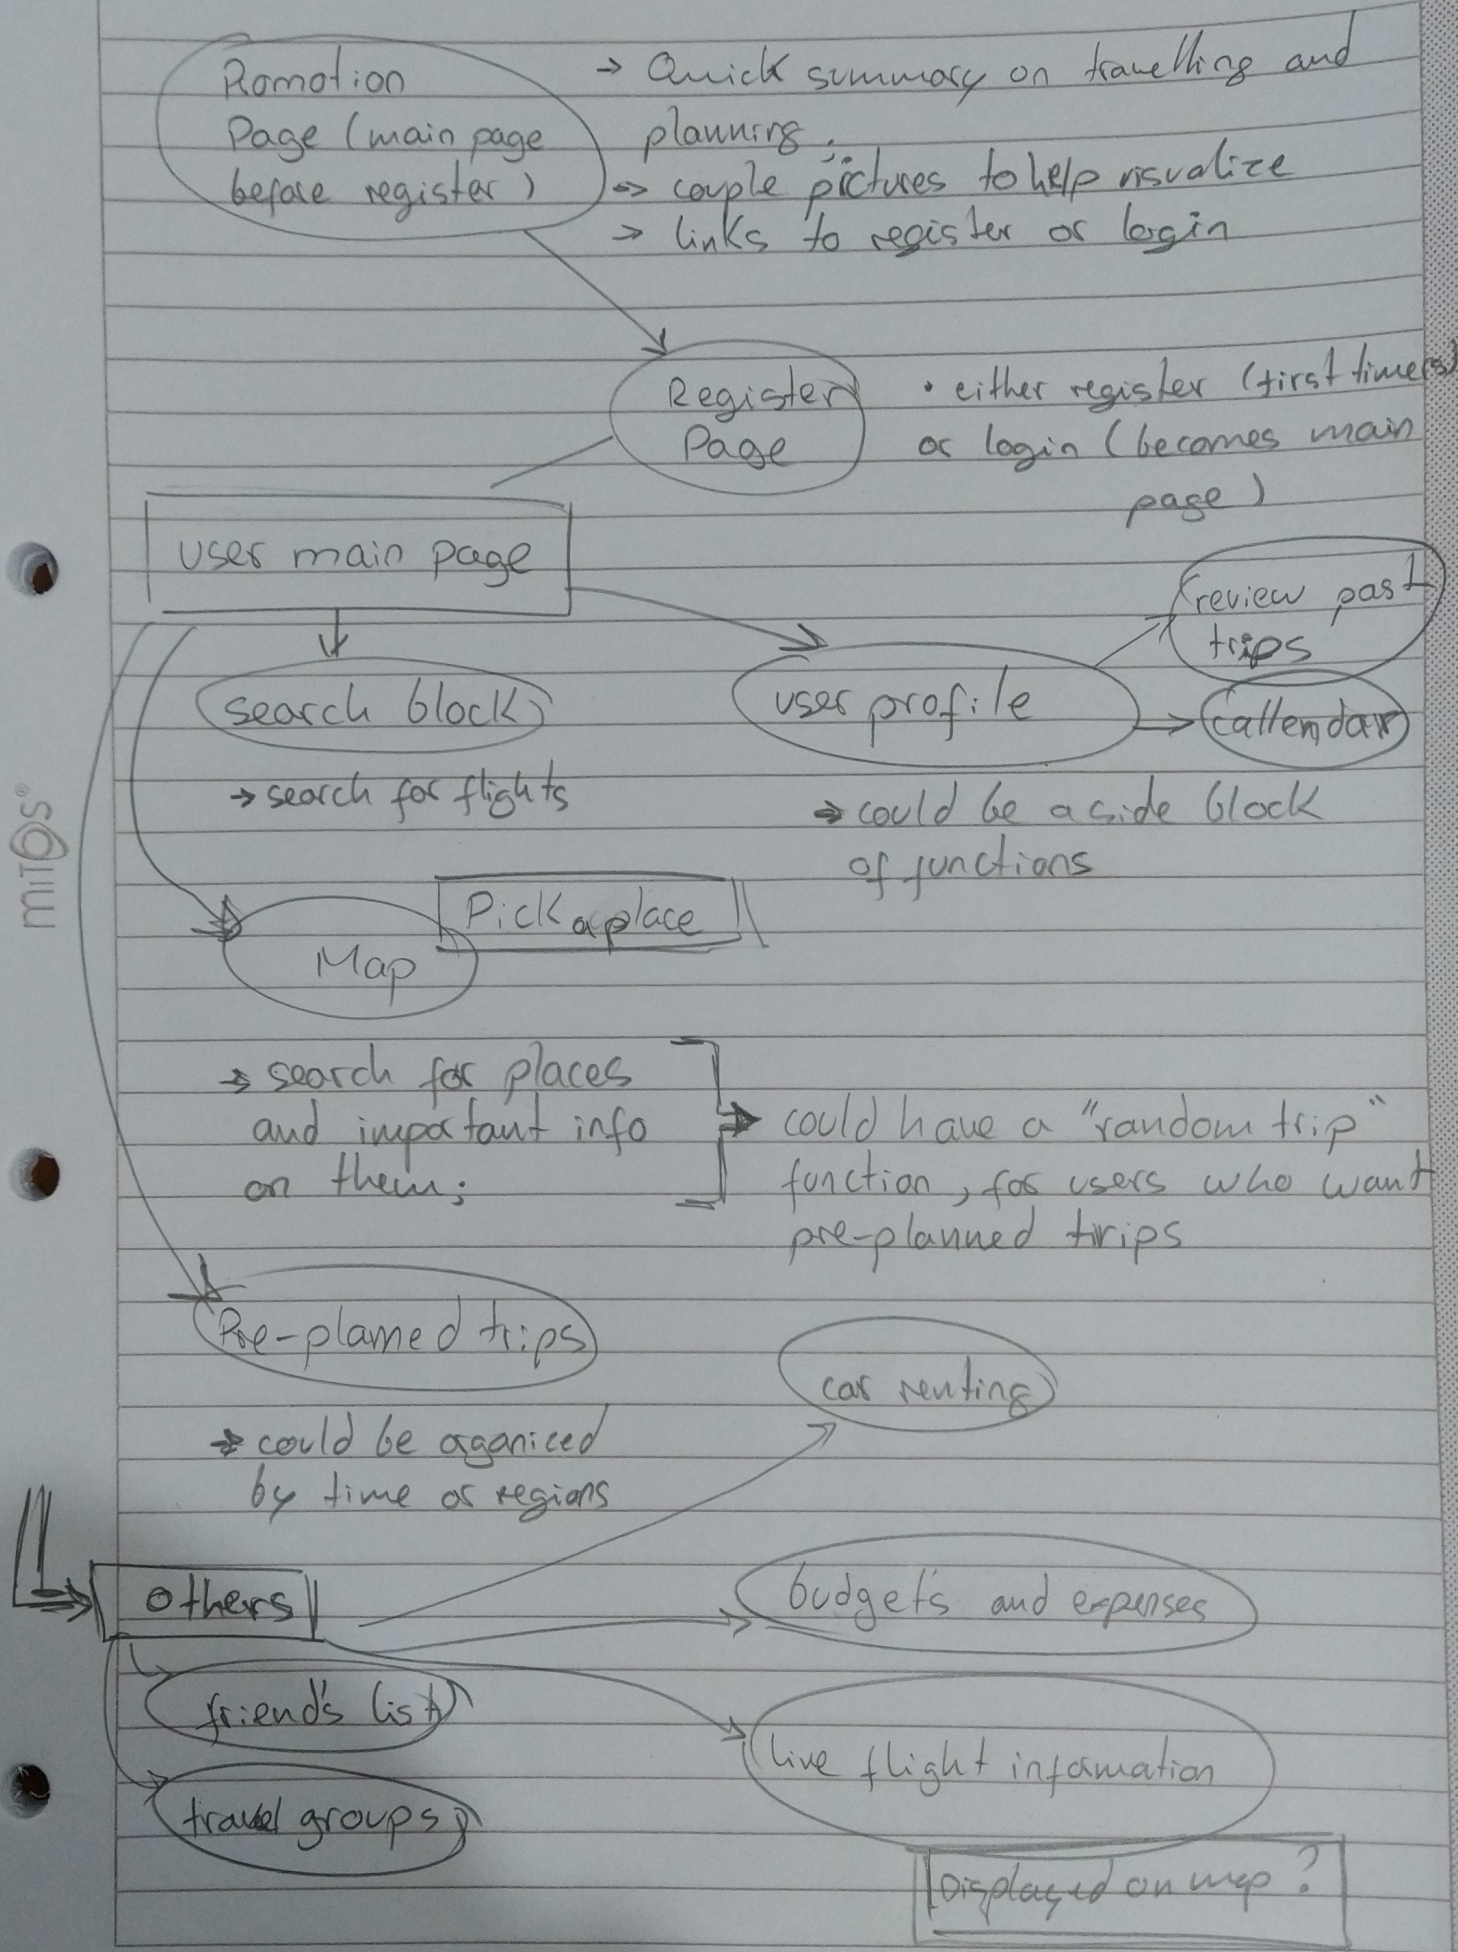 Promotion
Page (main page
before register)
→ Quick summary on travelling and
planning.
→ couple pictures to help visualize
→ links to register or login
Register
Page
• either register (first timers)
or login (becomes main
page)
user main page
review past
trips
search block
user profile
callendar
→ search for flights
→ could be a side block
of functions
mitos
Pick a place
Map
→ search for places
and important info
on them;
→ could have a "random trip"
function, for users who want
pre-planned trips
Pre-planned trips
car renting
→ could be organiced
by time or regions
others
budget's and expenses
friend's list
live flight information
travel groups
Displayed on map?